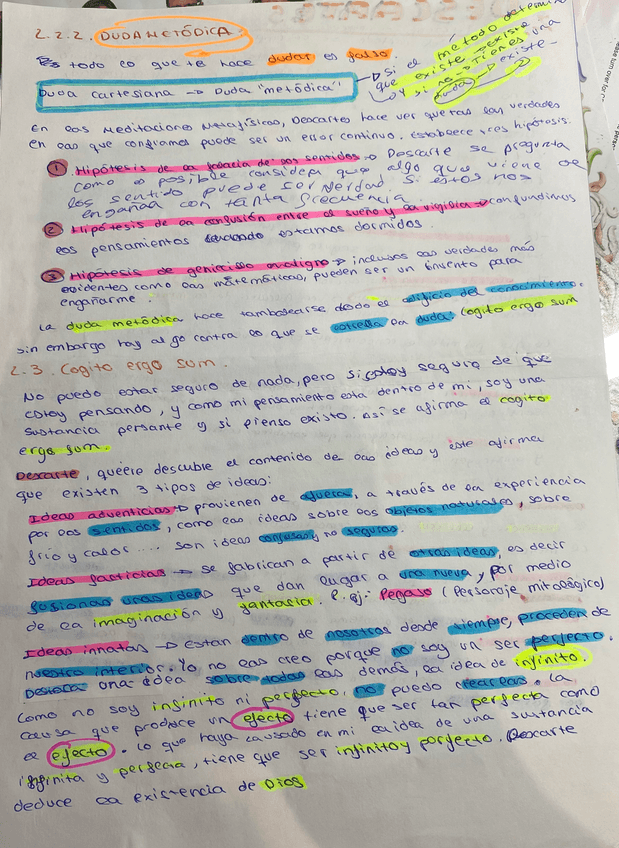 2.2.2. DUDA METÓDICA
Es todo lo que te hace dudar es falso.
Duda cartesiana → Duda "metódica"
→ Si el método determina
que existe → existe
y si no → tienes una
duda → existe
En las Meditaciones Metafísicas, Descartes hace ver que tras las verdades
en las que confiamos puede ser un error continuo. Establece tres hipótesis:
1 Hipótesis de la falacia de los sentidos → Descarte se pregunta
como es posible considera que algo que viene de
los sentido puede ser verdad. Si estos nos
engañaa con tanta frecuencia.
2 Hipótesis de la confusión entre el sueño y la vigilia → confundimos
los pensamientos cuando estamos dormidos.
3 Hipótesis de genicillo maligno → inclusos las verdades más
evidentes como las matemáticas, pueden ser un invento para
engañarme.
La duda metódica hace tambalearse desde el edificio del conocimiento.
sin embargo hay algo contra lo que se la duda: Cogito ergo sum
2.3. Cogito ergo sum.
No puedo estar seguro de nada, pero si estoy seguro de que
estoy pensando, y como mi pensamiento esta dentro de mi, soy una
sustancia pensante y si pienso existo. Así se afirma el cogito
ergo sum.
Descarte, quiere descubre el contenido de las ideas y este afirma
que existen 3 tipos de ideas:
Ideas adventicias → provienen de afuera, a través de la experiencia
por los sentidos, como las ideas sobre los objetos naturales, sobre
frío y calor.... son ideas confusas y no seguras.
Ideas facticias → se fabrican a partir de otras ideas, es decir
fusionas unas ideas que dan lugar a una nueva, por medio
de la imaginación y fantasia. P.ej: Pegaso (Personaje mitológico)
Ideas innatas → estan dentro de nosotros desde siempre, proceden de
nuestro interior. Yo no las creo porque no soy un ser perfecto.
Destaca una idea sobre todas las demás, la idea de infinito.
Como no soy infinito ni perfecto, no puedo crearlas. La
causa que produce un efecto tiene que ser tan perfecta como
el efecto. Lo que haya causado en mi la idea de una sustancia
infinita y perfecta, tiene que ser infinito y perfecto. Descarte
deduce la existencia de Dios